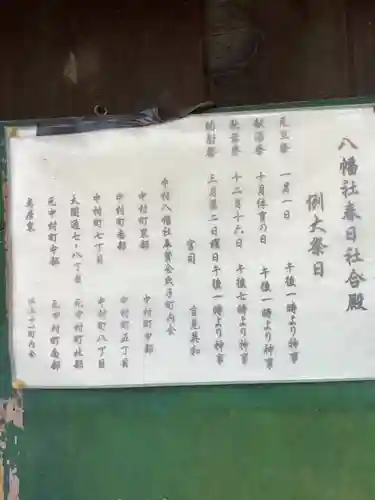 八幡社春日社合殿
例大祭日
元旦祭 一月一日 午後一時より神事
献湯祭 十月体育の日 午後一時より神事
秋葉祭 十二月十六日 午後七時より神事
三月第二日曜日午後一時より神事
宮司
中村八幡社奉賛会氏子町内会
中村町東部 中村町中部
中村町南部 中村町五丁目
中村町七丁目 中村町八丁目
太閤通七・八丁目 元中村町北部
元中村町中部 元中村町南部
町内会